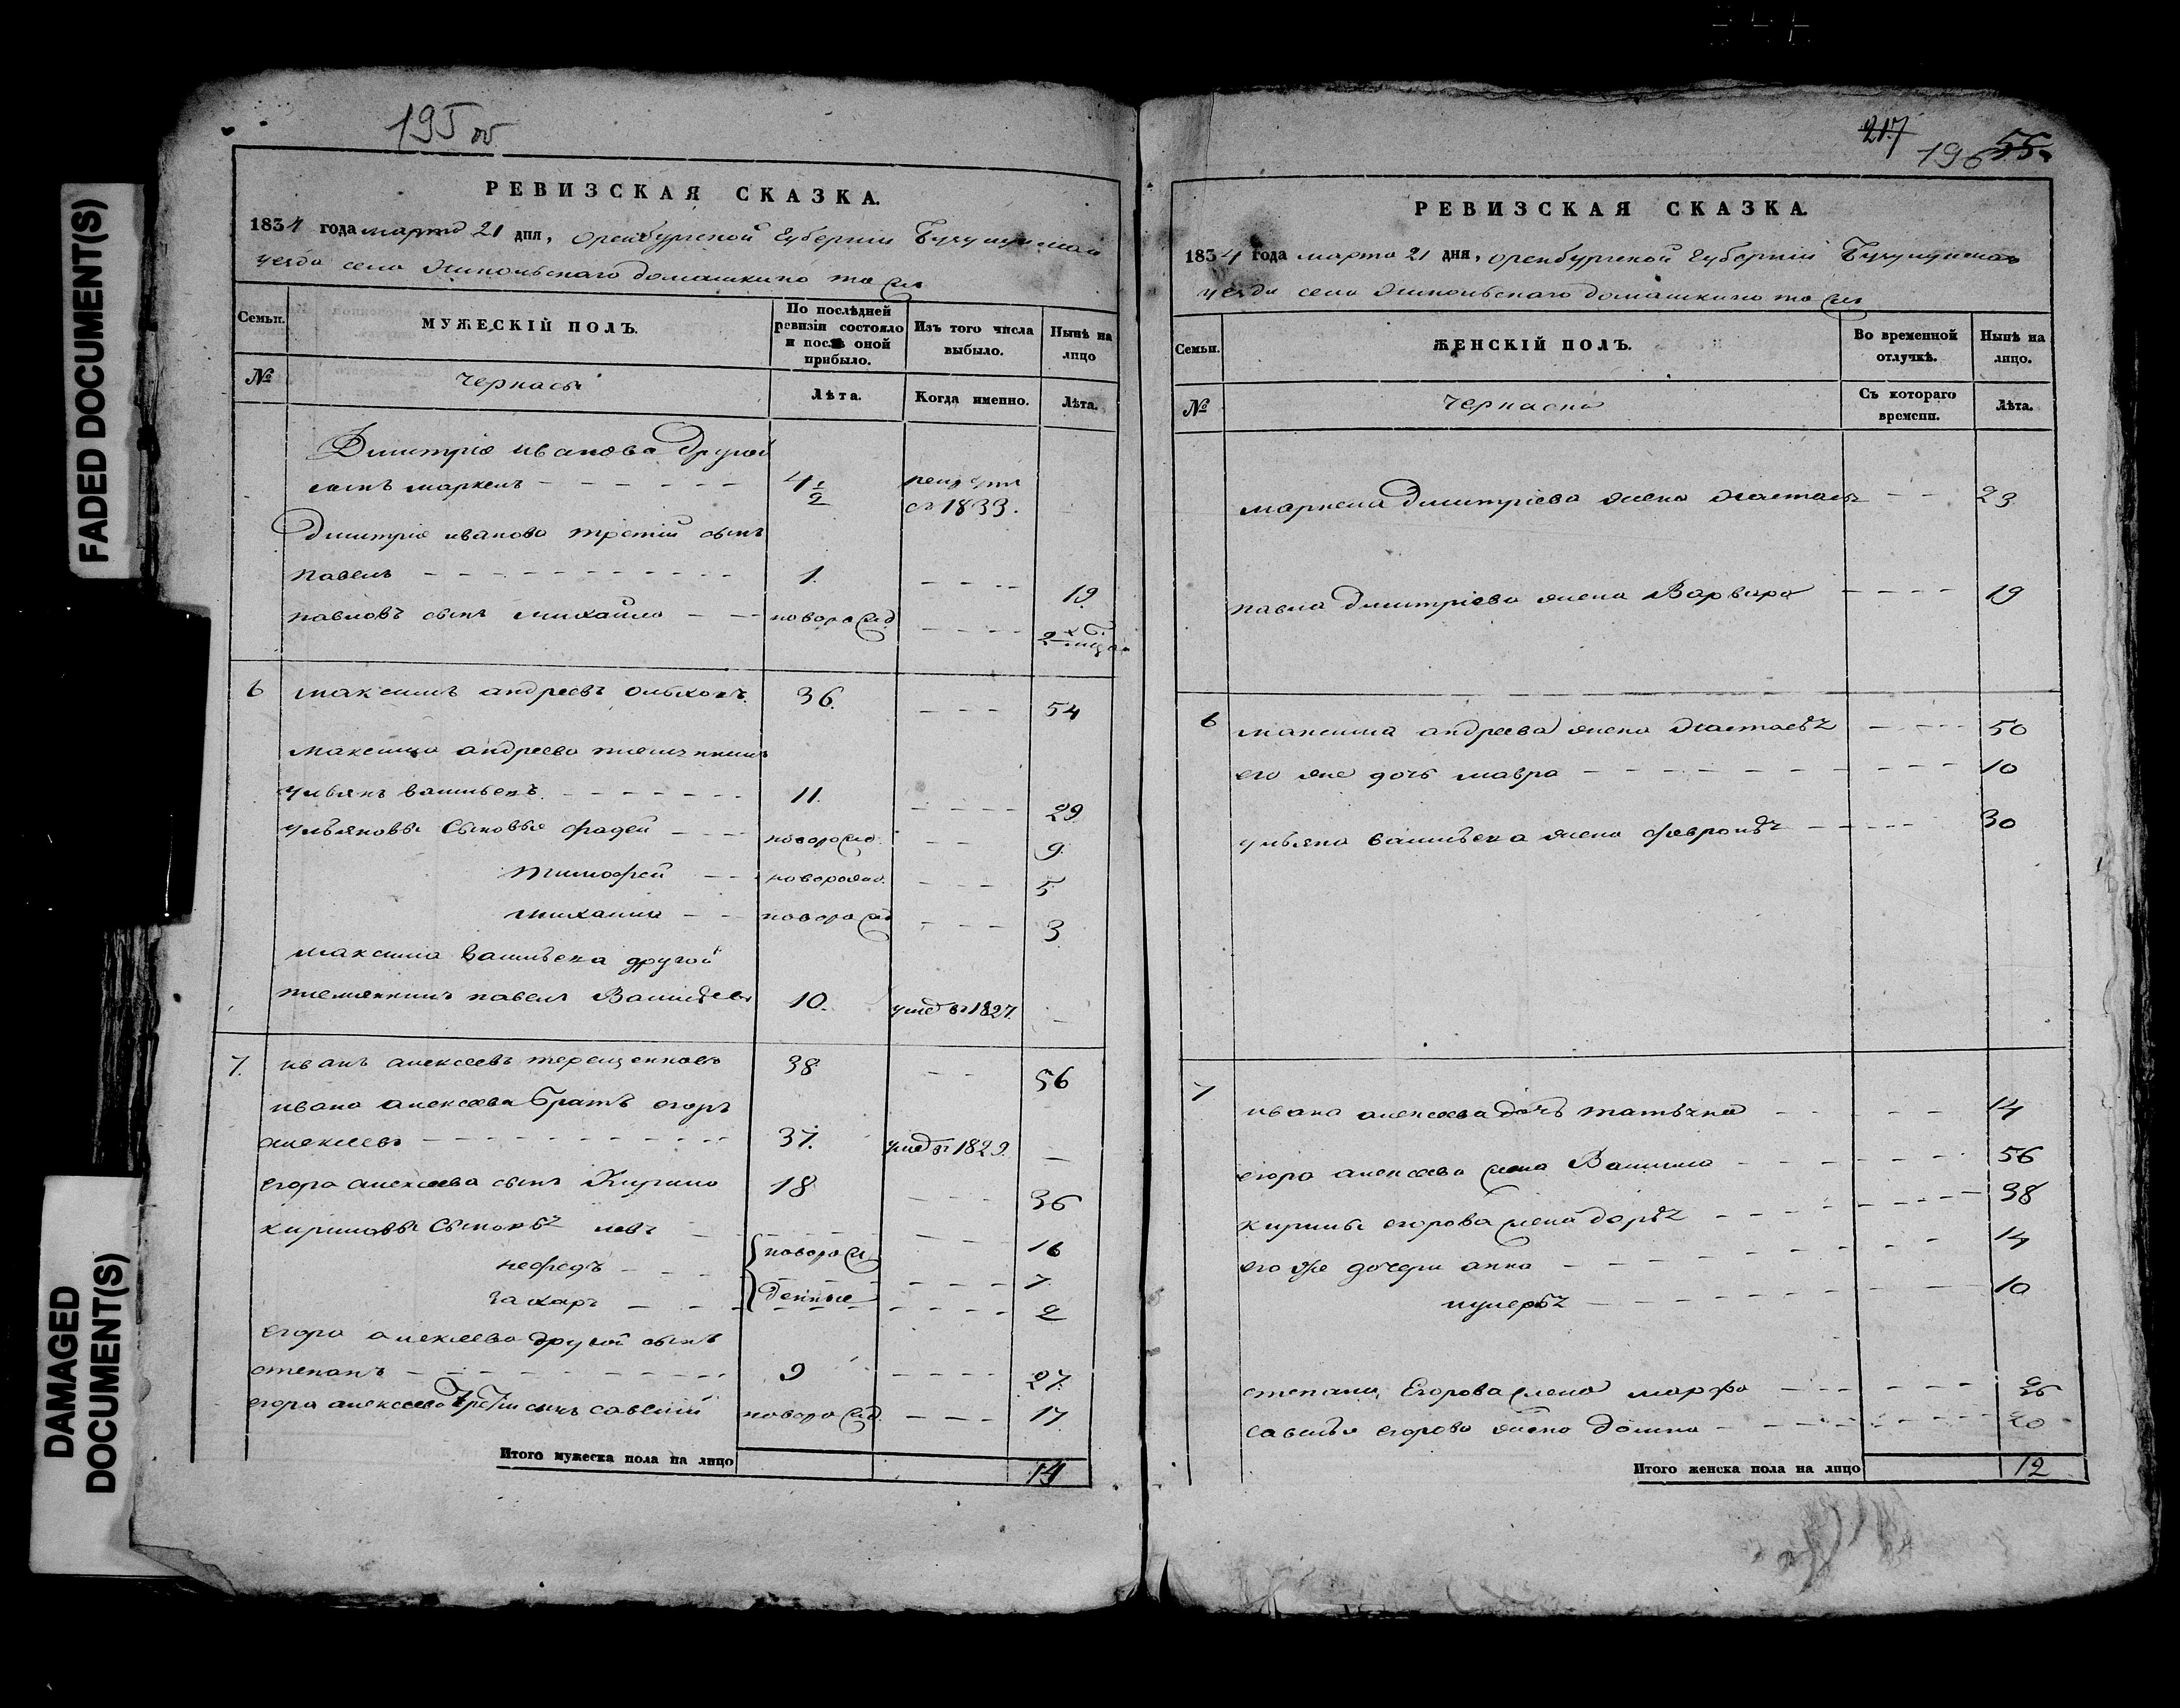 FADED DOCUMENT(S)
DAMAGED
DOCUMENT(S)
195 об
РЕВИЗСКАЯ СКАЗКА.
1834 года марта 21 дня, оренбургской губернии
уезда села домашкино то ж
Семьи.
МУЖЕСКІЙ ПОЛЪ.
По послѣдней
ревизіи состояло
и послѣ оной
прибыло.
Изъ того числа
выбыло.
Нынѣ на
лицо
№
черкасы
Лѣта.
Когда именно.
Лѣта.
Дмитрія иванова другой
сынъ маркелъ 4 1/2
съ 1833.
Дмитрія иванова третій сынъ
павелъ 1. 19
павловъ сынъ михайла новорожд 2
6 максимъ андреевъ 36. 54
максима андреева племянникъ
ульянъ васильевъ 11. 29
ульяновы сыновья фадей новорожд. 9
тимофей новорожд. 5
михайла новорожд 3
максима васильева другой
племянникъ павелъ Васильевъ 10. умер въ 1827.
7. иванъ алексеевъ терещенковъ 38 56
ивана алексеева братъ егоръ
алексеевъ 37. умер въ 1829.
егора алексеева сынъ Кирила 18 36
кириловы сыновья левъ новорож 16
нефедъ 7
захаръ денные 2
егора алексеева другой сынъ
степанъ 9 27.
егора алексеева третій сынъ савелій новорожд. 17
Итого мужеска пола на лицо 14
217
196 55.
РЕВИЗСКАЯ СКАЗКА.
1834 года марта 21 дня, оренбургской губерніи
уезда села домашкино то ж
Семьи.
ЖЕНСКІЙ ПОЛЪ.
Во временной
отлучкѣ.
Нынѣ на
лицо.
№
черкаски
Съ котораго
времени.
Лѣта.
маркела дмитріева жена 23
павла дмитріева жена Варвара 19
6 максима андреева жена 50
его же дочь мавра 10
ульяна васильева жена 30
7 ивана алексеева дочь татьяна 14
егора алексеева жена 56
кирилы егорова жена дарья 38
его же дочери анна 14
10
степана Егорова жена марфа 26
савелья егорова жена домна 20
Итого женска пола на лицо 12